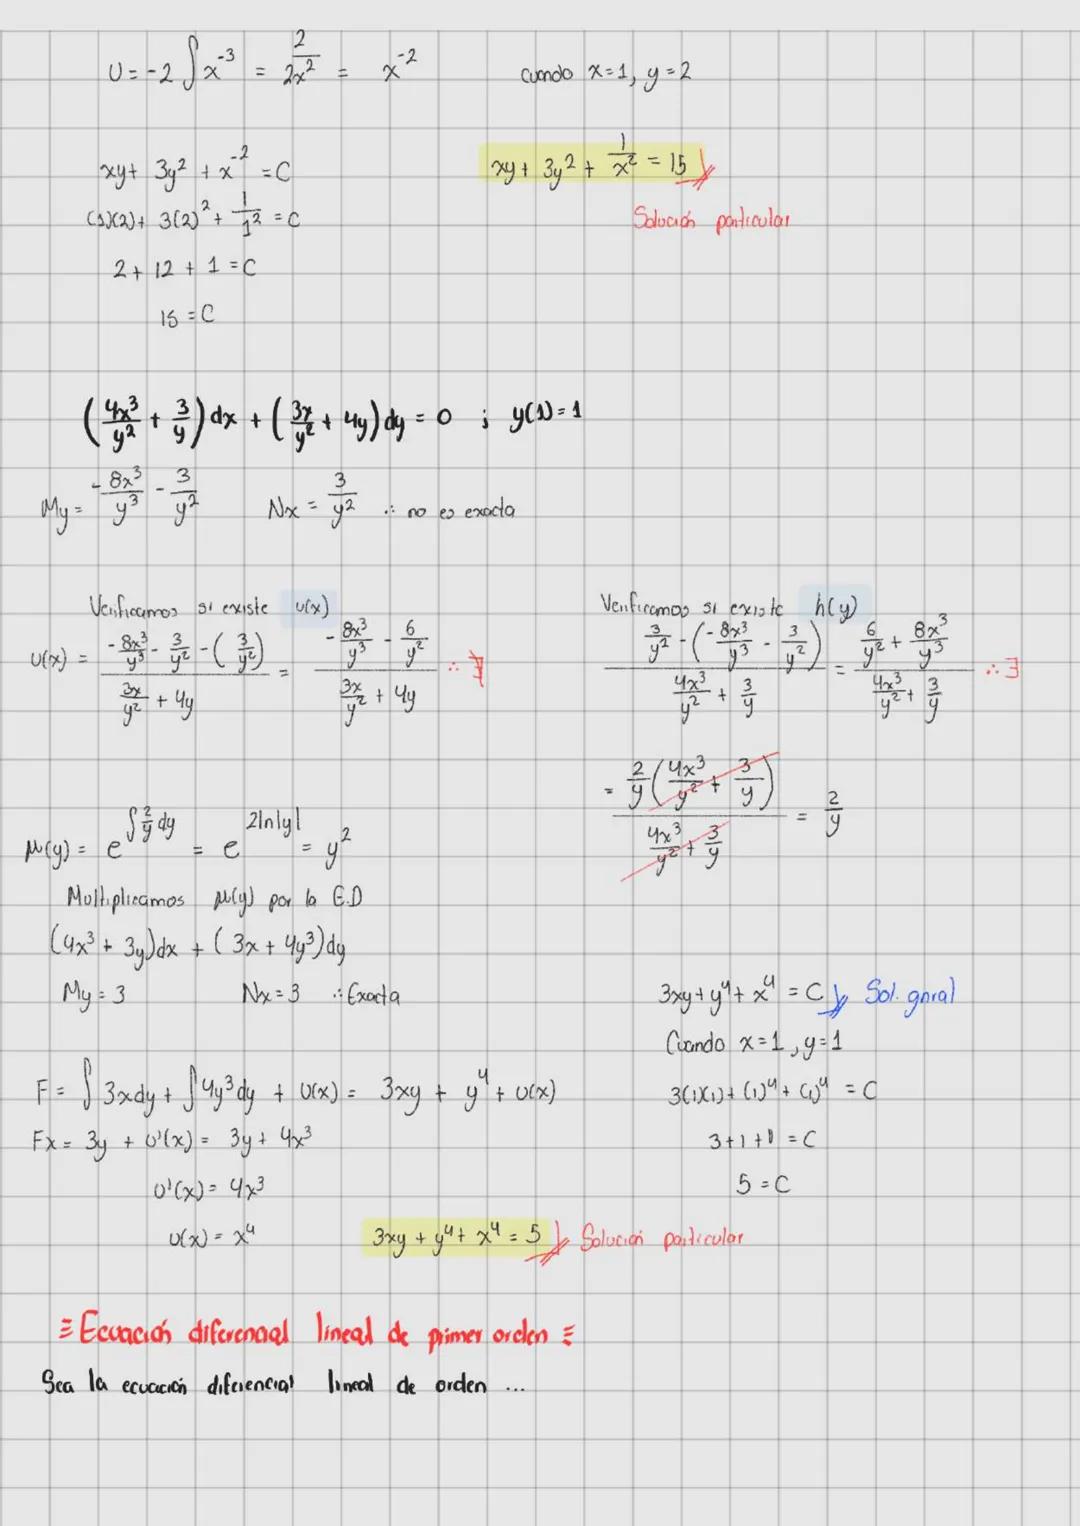 U = -2 ∫ x⁻³ = 2/2x² = x⁻²
cuando x=1, y=2
xy + 3y² + x⁻² = C
xy + 3y² + 1/x² = 15
(1)(2) + 3(2)² + 1/1² = C
Solución particular
2 + 12 + 1 = C
15 = C
(4x³/y² + 3/y) dx + (3x/y² + 4y) dy = 0 ; y(1) = 1
My = -8x³/y³ - 3/y²
Nx = 3/y² ∴ no es exacta
Verificamos si existe u(x)
U(x) = (-8x³/y³ - 3/y² - (3/y²)) / (3x/y² + 4y) = (-8x³/y³ - 6/y²) / (3x/y² + 4y) ∴ ∄
Verificamos si existe h(y)
(3/y² - (-8x³/y³ - 3/y²)) / (4x³/y² + 3/y) = (6/y² + 8x³/y³) / (4x³/y² + 3/y) ∴ ∃
= 2/y (4x³/y² + 3/y) / (4x³/y² + 3/y) = 2/y
μ(y) = e^∫2/y dy = e^2ln|y| = y²
Multiplicamos μ(y) por la E.D
(4x³ + 3y)dx + (3x + 4y³)dy
My = 3 Nx = 3 ∴ Exacta
F = ∫ 3xdy + ∫ 4y³dy + U(x) = 3xy + y⁴ + U(x)
Fx = 3y + U'(x) = 3y + 4x³
U'(x) = 4x³
U(x) = x⁴
3xy + y⁴ + x⁴ = C Sol. gnral
Cuando x=1, y=1
3(1)(1) + (1)⁴ + (1)⁴ = C
3+1+1 = C
5 = C
3xy + y⁴ + x⁴ = 5 Solución particular
Ecuación diferencial lineal de primer orden
Sea la ecuación diferencial lineal de orden ...